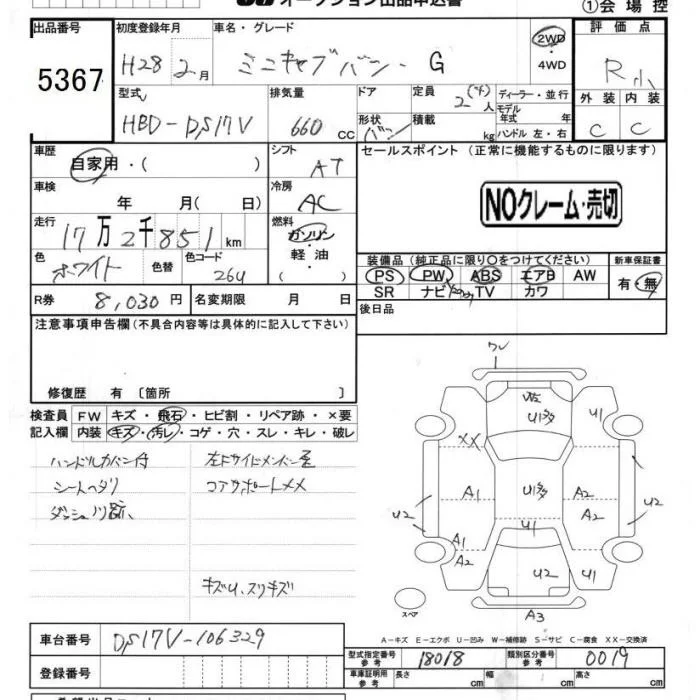 オークション出品申込書
①会場控
出品番号 初度登録年月 車名・グレード 評価点
5367
H28 2月 ミニキャブバン G 2WD・4WD R
型式 排気量 ドア 定員 ディーラー・並行 外装 内装
HBD-DS17V 660 cc 2人 モデル年式 年 C C
形状 バン 積載 kg ハンドル 左・右
車歴 シフト セールスポイント (正常に機能するものに限ります)
自家用・( ) AT
車検 冷房
年 月( 日) AC
NOクレーム・売切
走行 燃料
17万2千851km ガソリン・軽油・( )
色 色替 色コード
ホワイト 264
装備品 (純正品に限り○をつけてください) 新車保証書
PS PW ABS エアB AW 有・無
SR ナビ TV カワ
R券 8,030円 名変期限 月 日
後日品
注意事項申告欄(不具合内容等は具体的に記入して下さい)
修復歴 有 〔箇所 〕
検査員記入欄 FW キズ・飛石・ヒビ割・リペア跡・×要
内装 キズ・汚レ・コゲ・穴・スレ・キレ・破レ
ハンドルカバー付
シートヘタリ
コアサポートメメ
キズU、スリキズ
ワレ
U多 U1
XX
A1 U1多 A2
U2 A2 U2
A1 U1
A2 U2 U1
スペア A3
A-キズ E-エクボ U-凹み W-補修跡 S-サビ C-腐食 XX-交換済
車台番号 DS17V-106329
型式指定番号 参考 18018 類別区分番号 参考 0019
登録番号
車庫証明用 参考 長さ cm 幅 cm 高さ cm